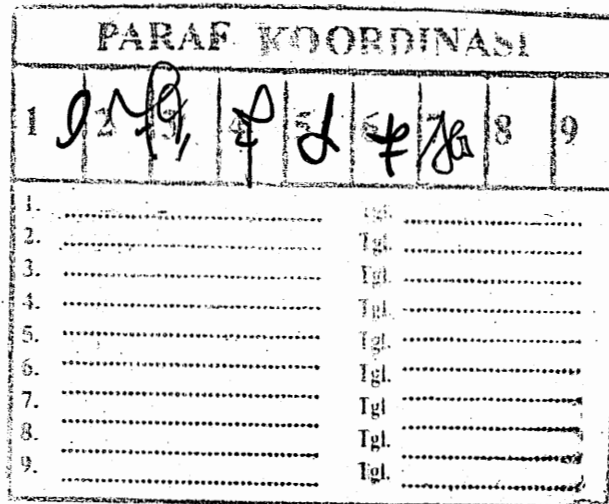 PARAF KOORDINASI
2 3 4 5 6 7 8 9
1. .......... Tgl. ..........
2. .......... Tgl. ..........
3. .......... Tgl. ..........
4. .......... Tgl. ..........
5. .......... Tgl. ..........
6. .......... Tgl. ..........
7. .......... Tgl ..........
8. .......... Tgl. ..........
9. .......... Tgl. ..........